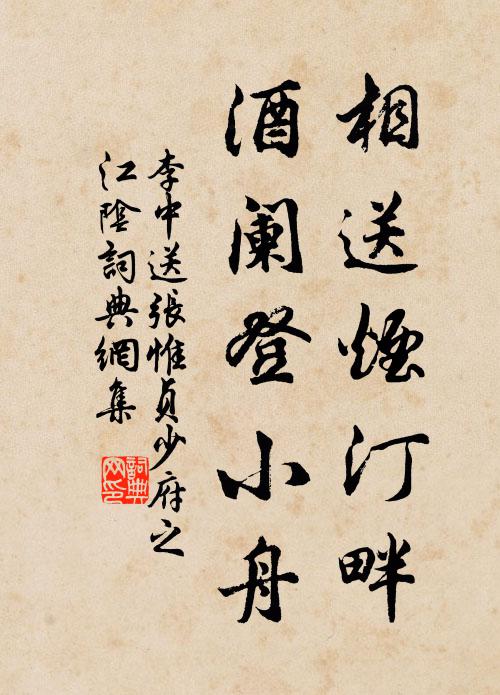 相送煙汀畔
酒阑登小舟
李中送張惟貞少府之
江陰詞典網集
詞典
网印